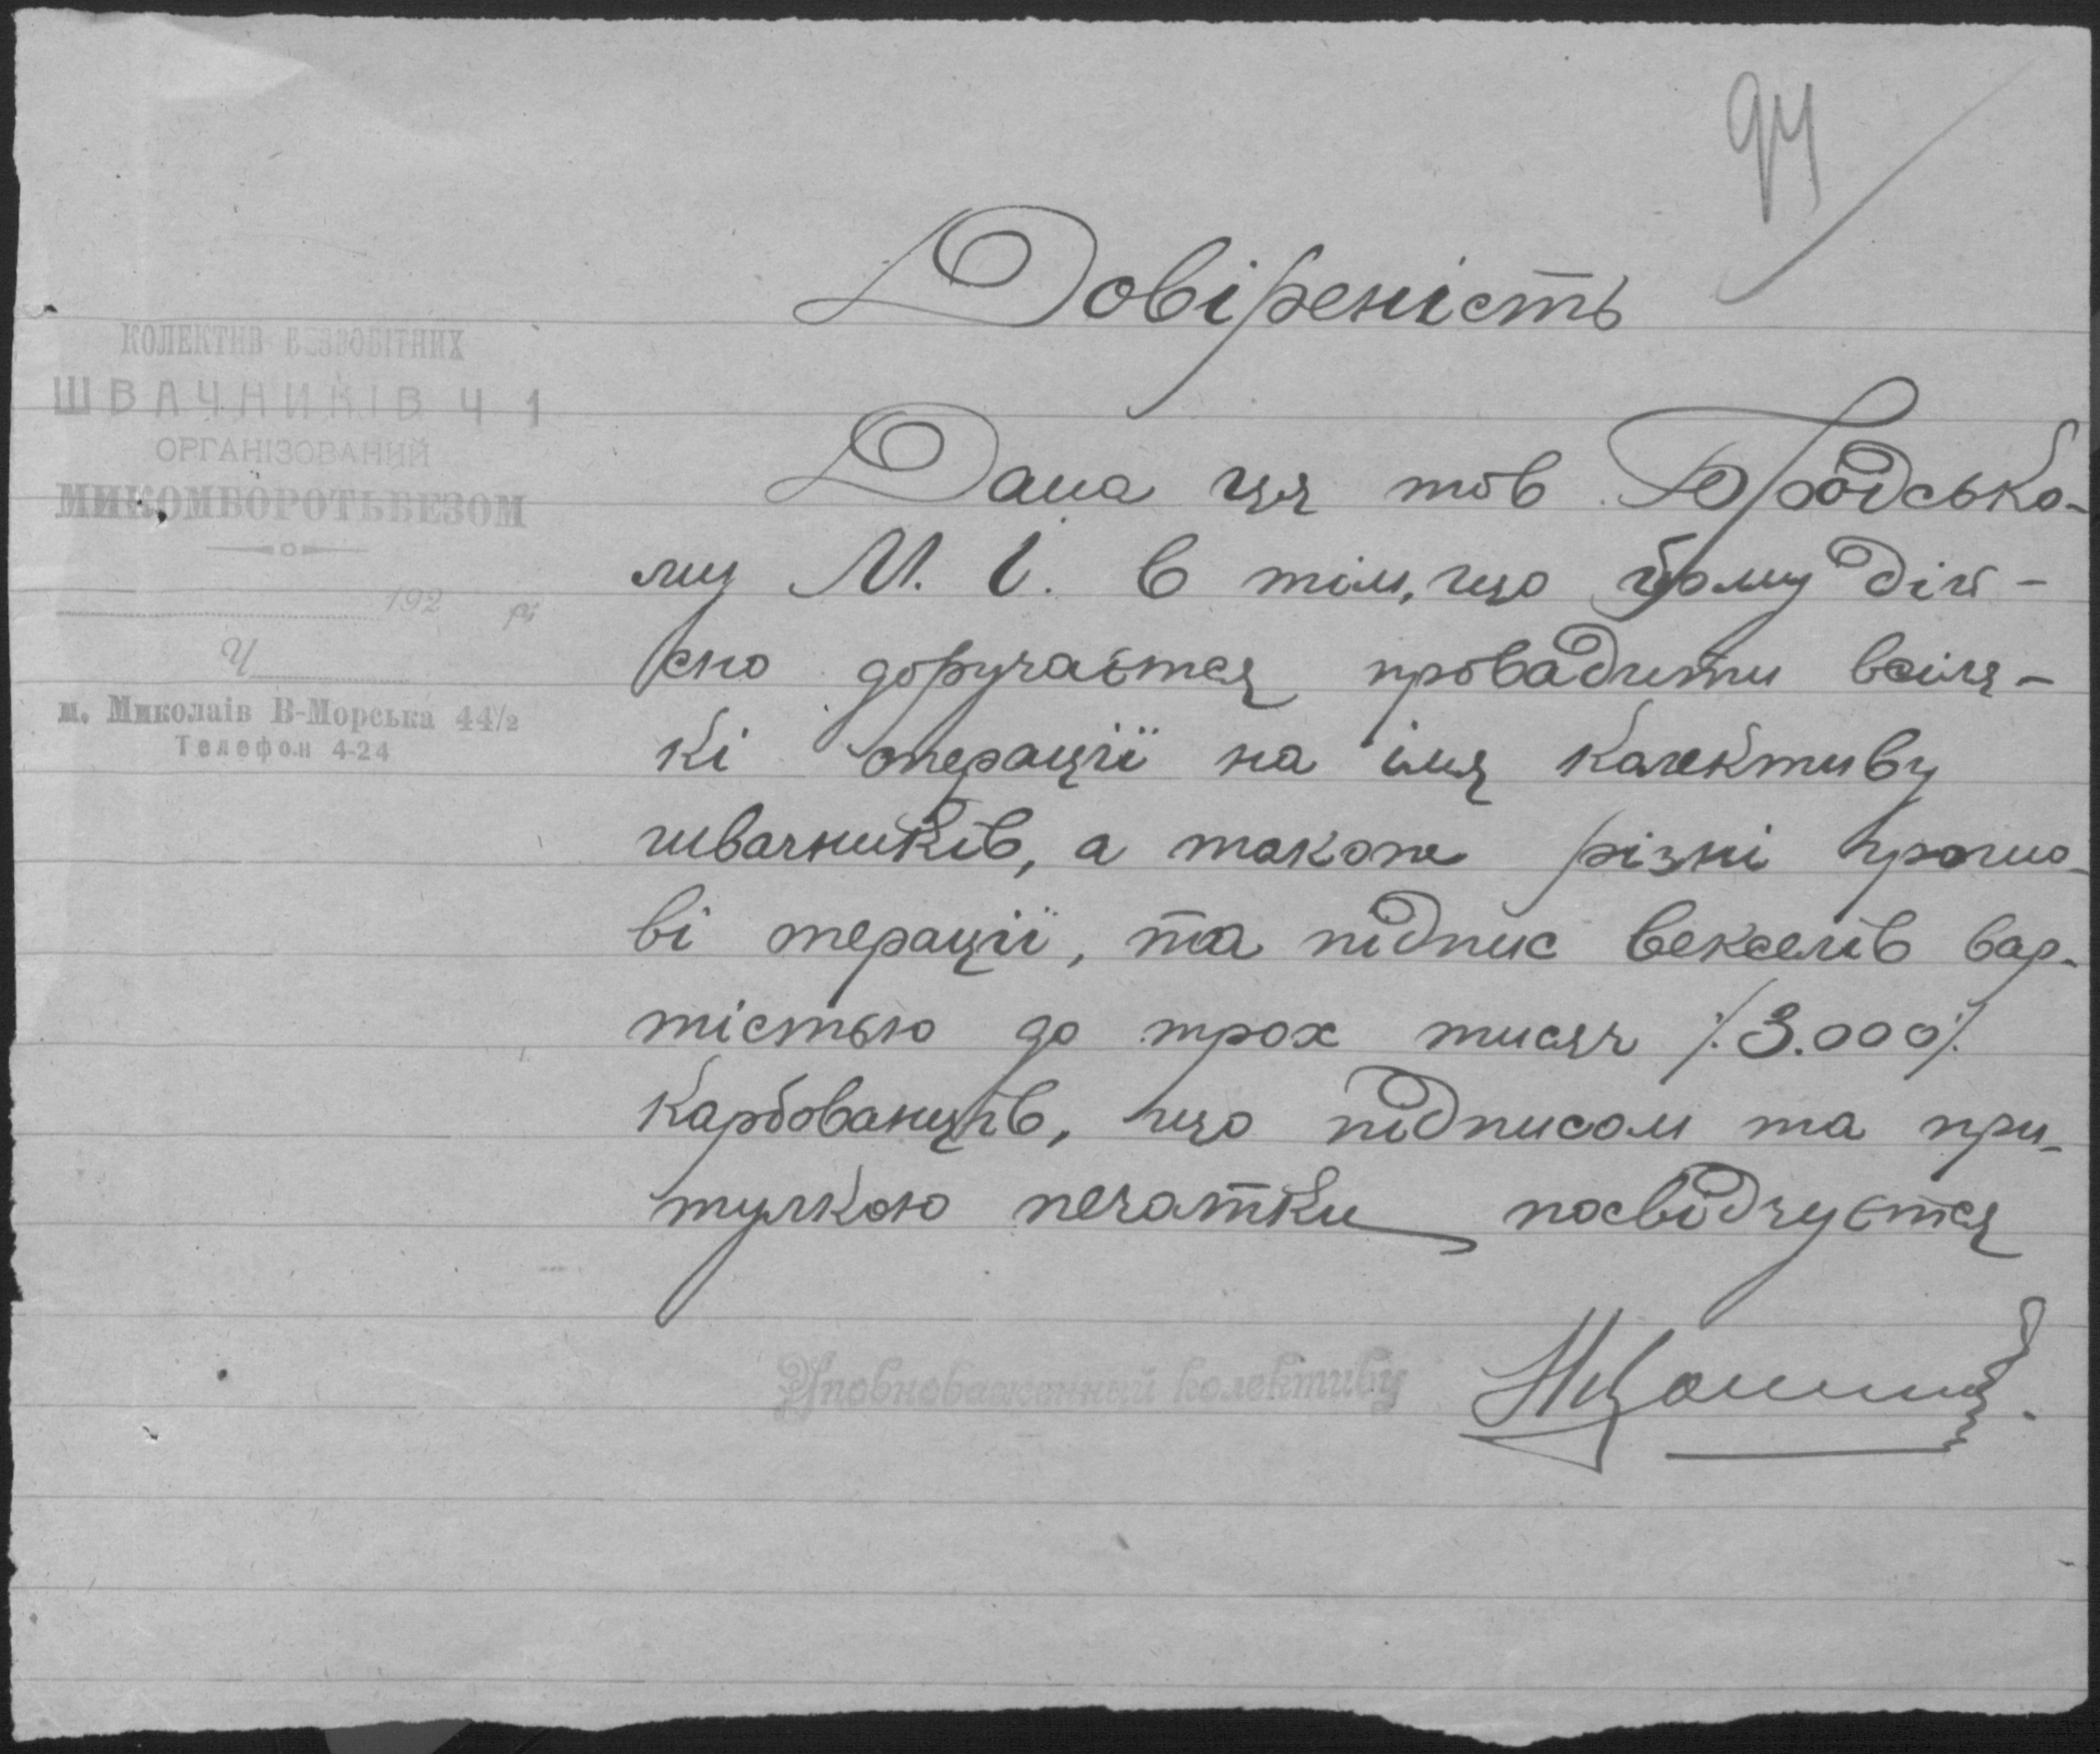 94
Довіреність
КОЛЕКТИВ БЕЗРОБІТНИХ
ШВАЧНИКІВ Ч 1
ОРГАНІЗОВАНИЙ
МИКОМБОРОТЬБЕЗОМ
192 р.
Ч
м. Миколаів В-Морська 44½
Телефон 4-24
Дана ця тов Бродсько-
му М. І. в тім, що йому дій-
сно доручається провадити всіля-
кі операції на імя колективу
швачників, а також різні грошо-
ві операції, та підпис векселів вар-
тістью до трох тисяч /.3.000/.
карбованців, що підписом та при-
тулкою печатки посвідчується
Уповноваженний колективу